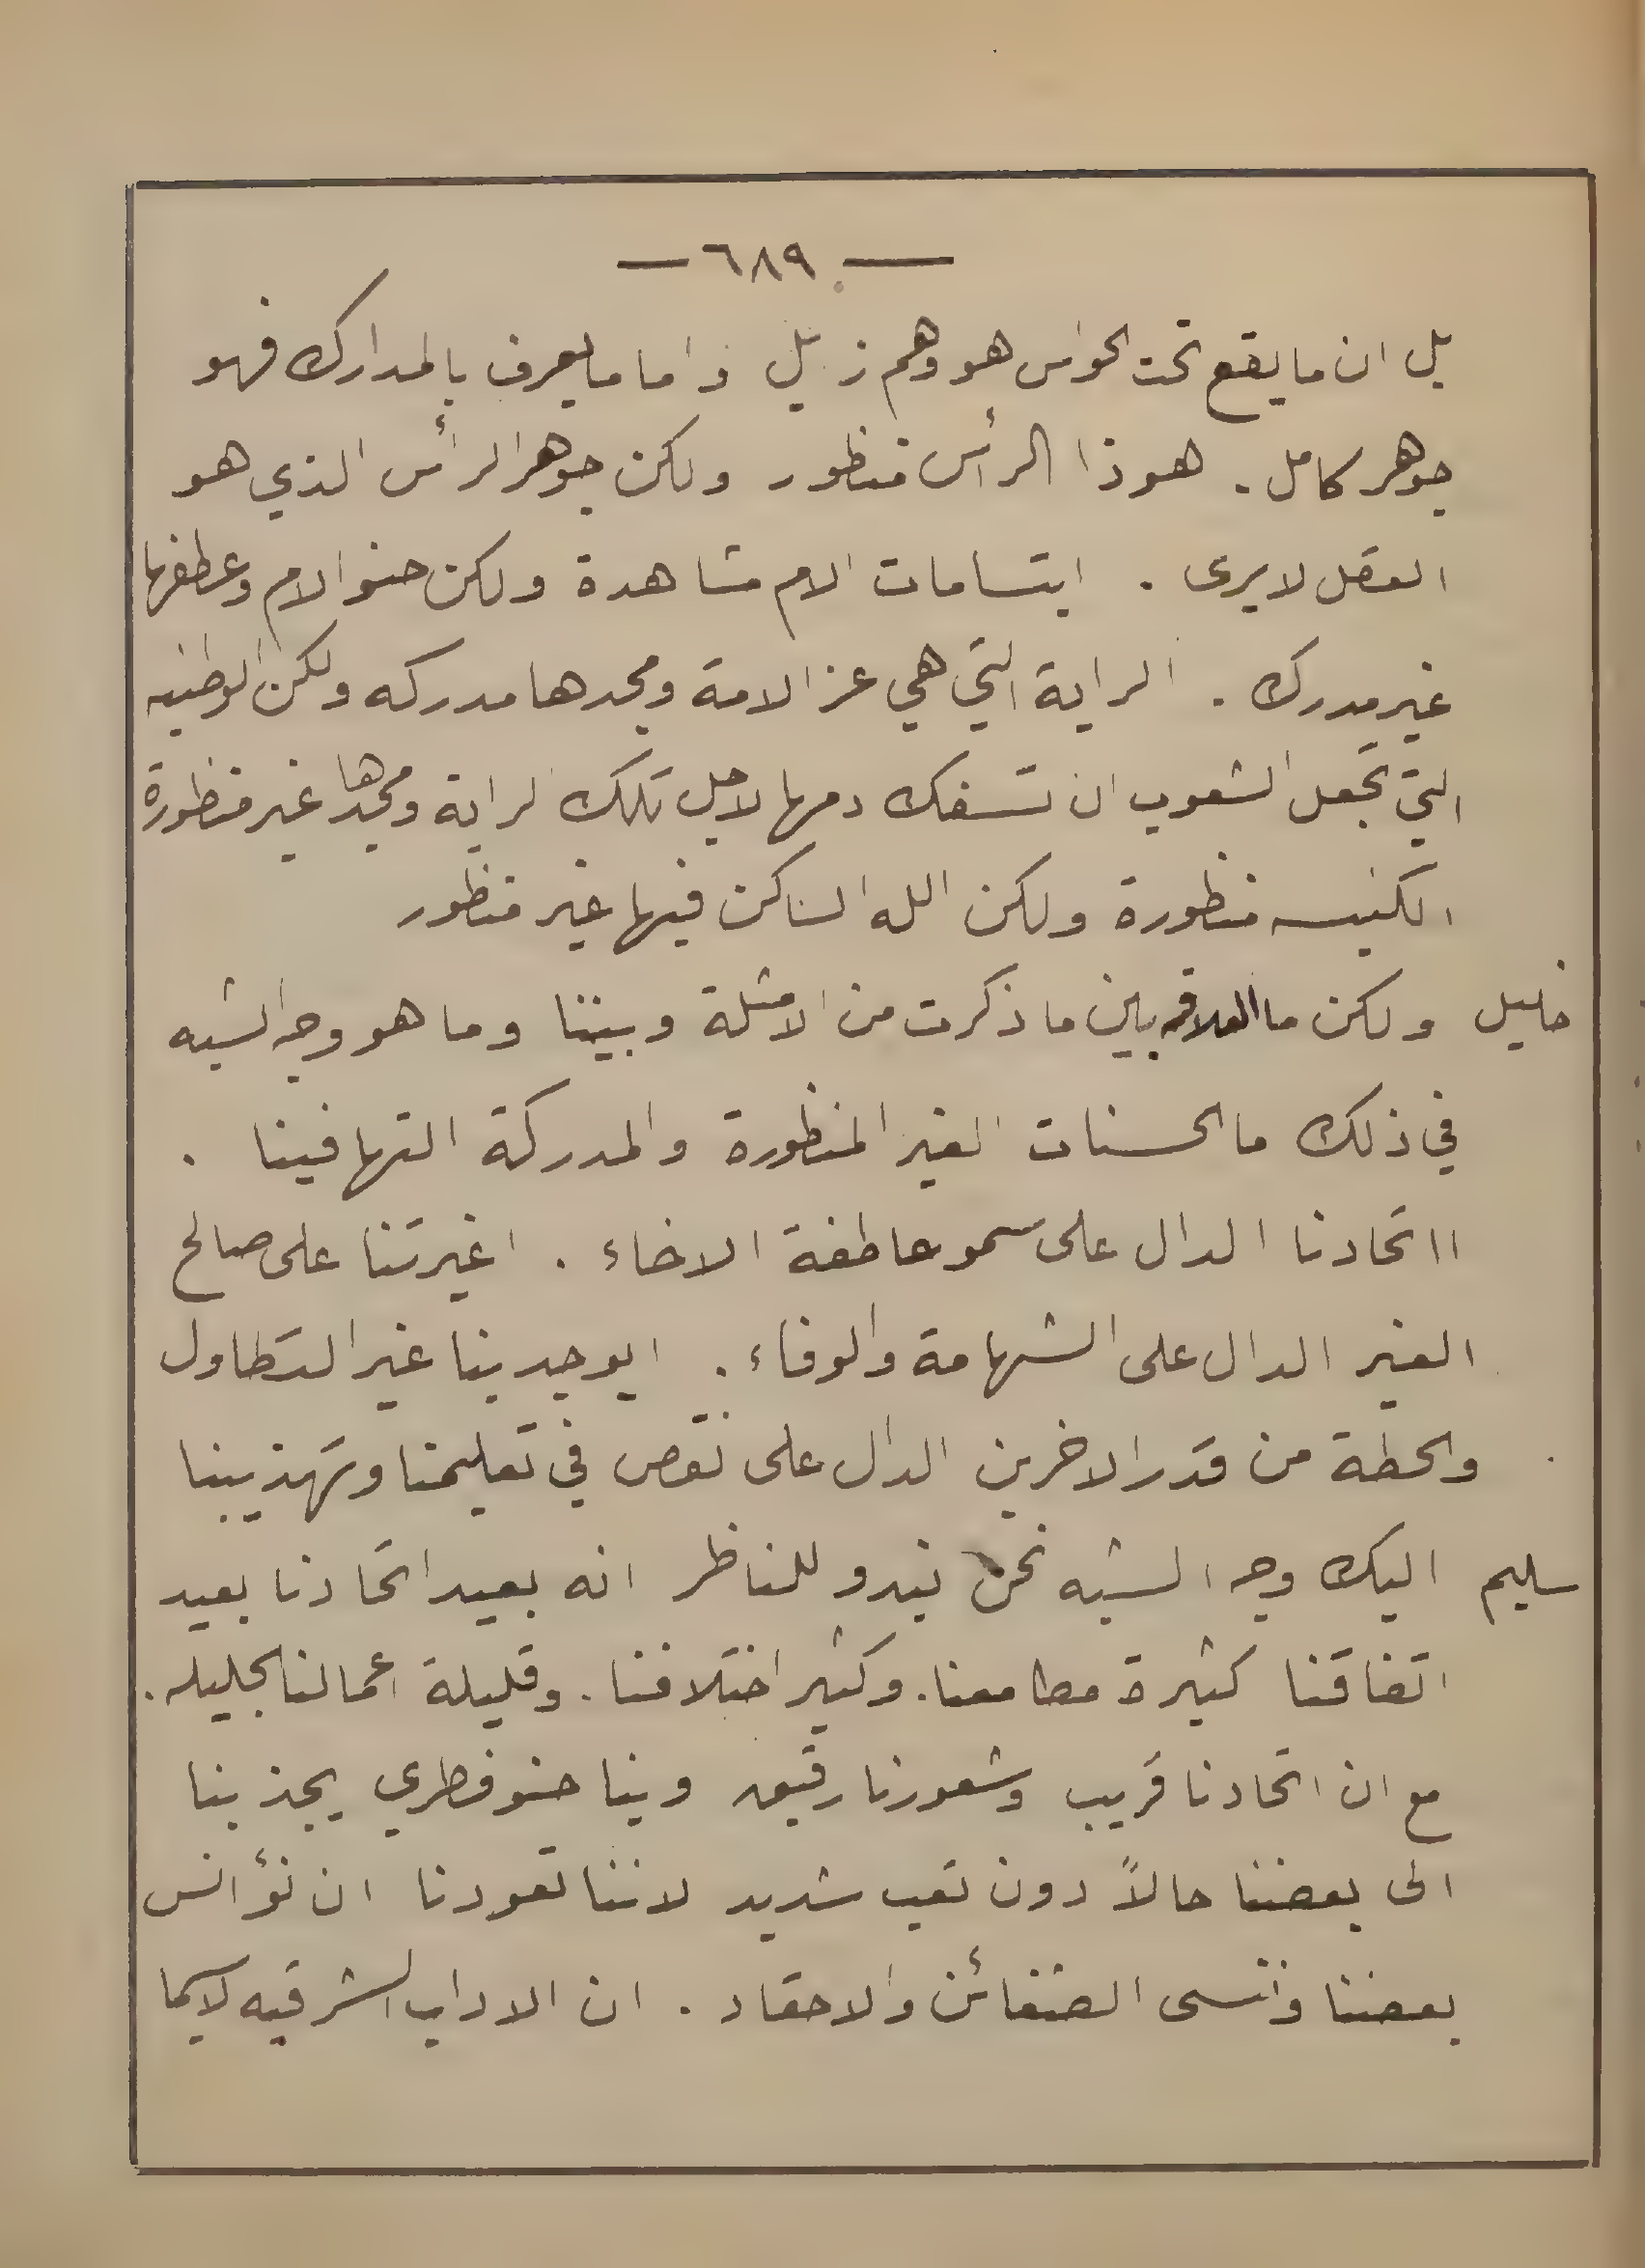 — ٦٨٩ —
بل ان ما يقع تحت الحواس هو وهم زيل واما ما يعرف بالمدارك فهو
جوهر كامل . هوذا الرأس منظور ولكن جوهر الرأس الذي هو
العقل لا يرى . ابتسامات الام مشاهدة ولكن حنو الام وعطفها
غير مدرك . الراية التي هي عز الامة ومجدها مدركه ولكن الوطنيه
التي تجعل الشعوب ان تسفك دمها لاجل تلك الراية ومجدها غير منظورة
الكنيسه منظورة ولكن الله الساكن فيها غير منظور
خليل ولكن ما العلاقه بين ما ذكرت من الامثلة وبيننا وما هو وجه الشبه
في ذلك ما الحسنات الغير المنظورة والمدركة التها فينا .
ااتحادنا الدال على سمو عاطفة الاخاء . اغيرتنا على صالح
الغير الدال على الشهامة والوفاء . ايوجد بنا غير التطاول
والحطة من قدر الاخرين الدال على نقص في تعليمنا وتهذيبنا
سليم اليك وجه الشبه نحن نبدو للناظر انه بعيد اتحادنا بعيد
اتفاقنا كثيرة مطامعنا . وكثير اختلافنا . وقليلة اعمالنا الجليله .
مع ان اتحادنا قريب وشعورنا رقيق وبنا حنو فطري يجذبنا
الى بعضنا حالاً دون تعب شديد لاننا تعودنا ان نؤانس
بعضنا وننسى الضغائن والاحقاد . ان الاداب الشرقيه لاسيما